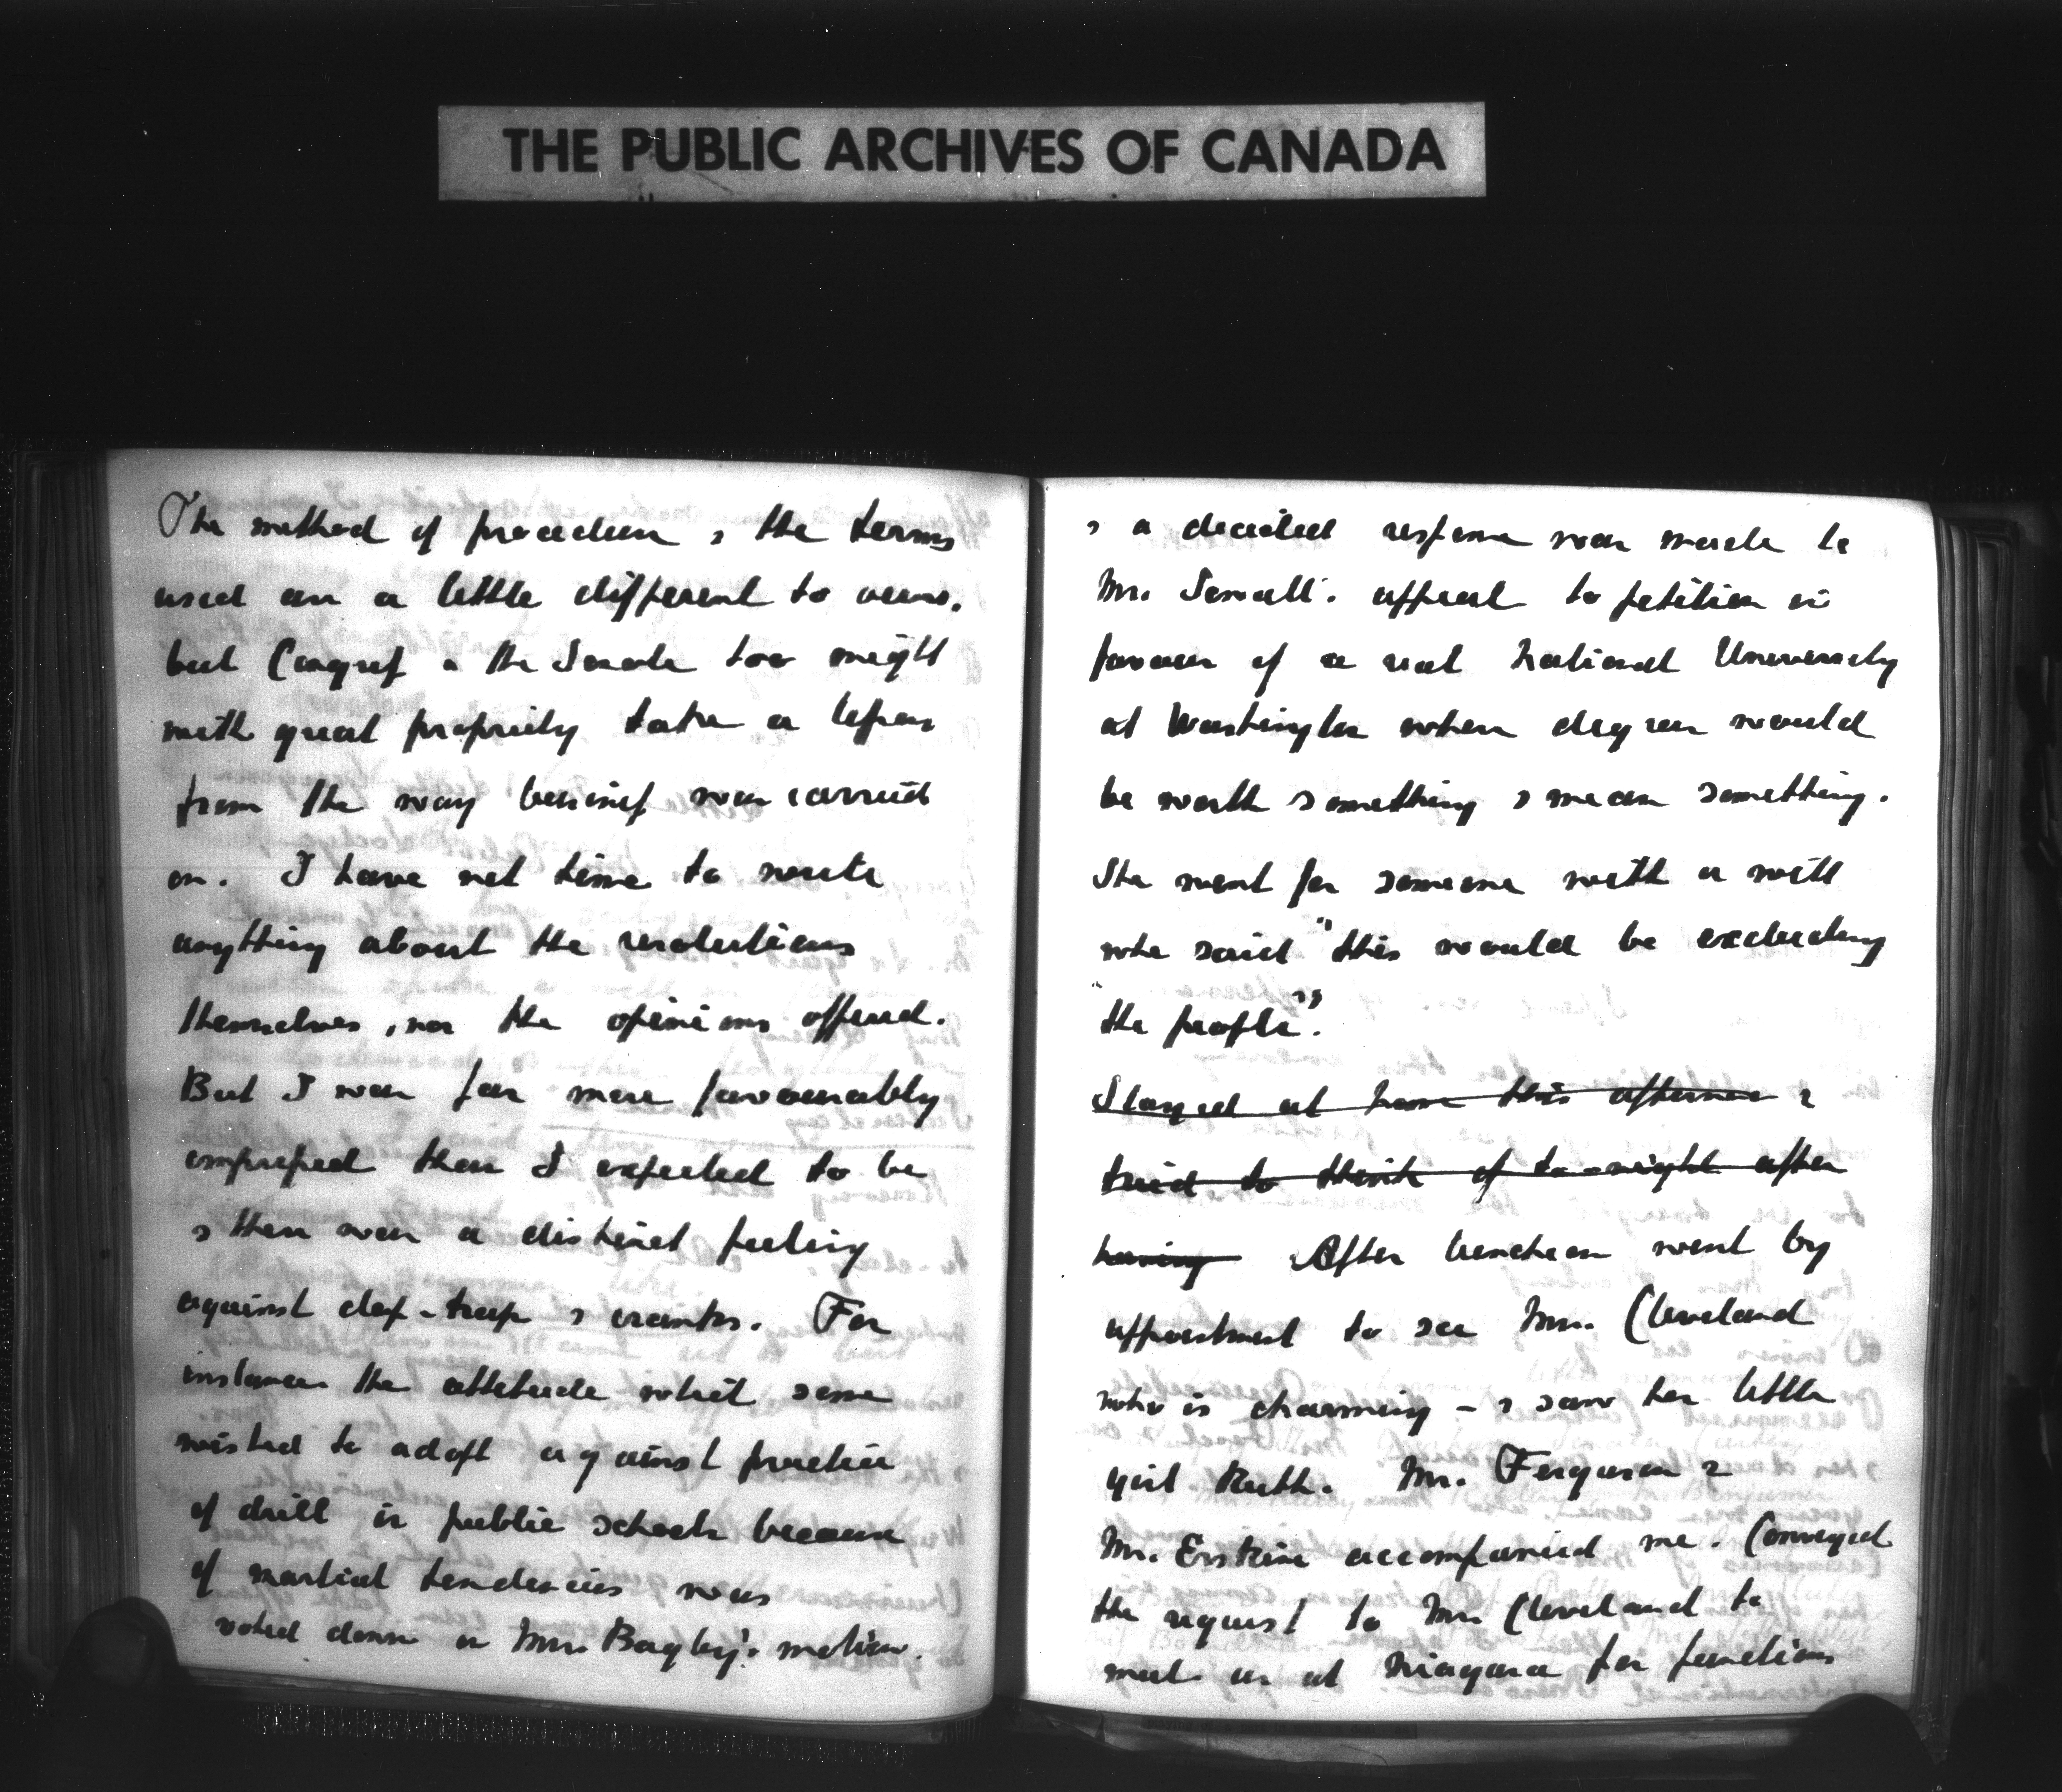 THE PUBLIC ARCHIVES OF CANADA
The method of procedure & the terms
used are a little different to ours.
but Congress & the Senate too might
with great propriety take a lesson
from the way business was carried
on. I have not time to write
anything about the resolutions
themselves, nor the opinions offered.
But I was far more favourably
impressed than I expected to be
& there was a distinct feeling
against clap-trap & cranks. For
instance the attitude which some
wished to adopt against practice
of drill in public schools because
of martial tendencies was
voted down on Mrs. Bagby's motion.
& a decided response was made to
Mrs. Sewall's appeal to petition in
favour of a real National University
at Washington where degrees would
be worth something & mean something.
She went for someone with a will
who said "this would be excluding
"the people".
Stayed at home this afternoon &
tried to think of to-night after
having After luncheon went by
appointment to see Mrs. Cleveland
who is charming - & saw her little
girl Ruth. Mr. Ferguson &
Mr. Erskine accompanied me. Conveyed
the request to Mrs Cleveland to
meet us at Niagara for function